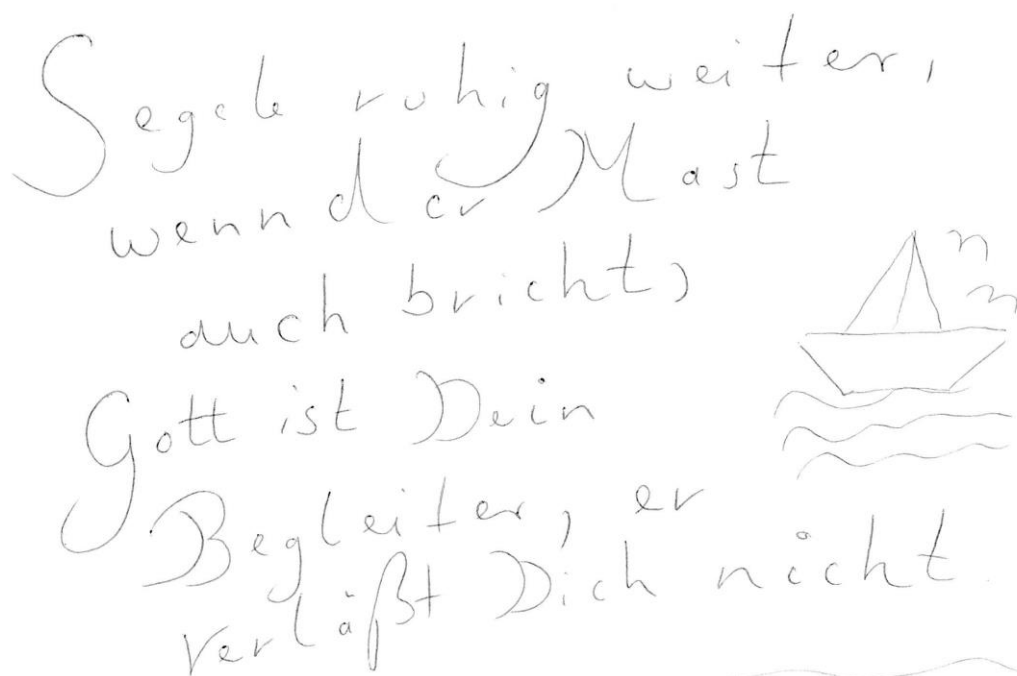 Segele ruhig weiter,
wenn der Mast
auch bricht,
Gott ist Dein
Begleiter, er
verläßt Dich nicht.